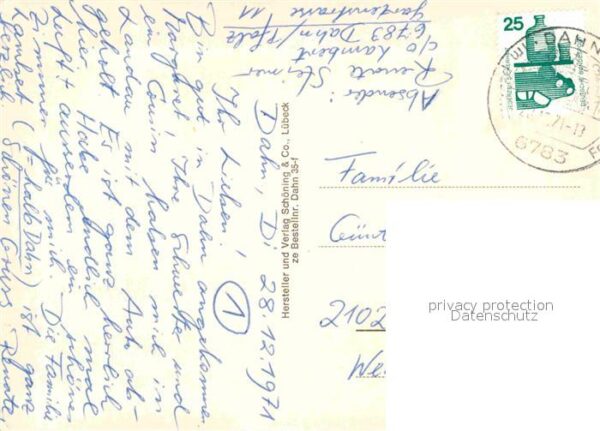 Absender:
Renate Steimer
c/o Lambert
6783 Dahn/Pfalz
Gartenstraße 11
25
DAHN
71-13
6783
Dahn, Di 28.12.1971
Ihr Lieben! 1
Bin gut in Dahn angekommen.
Margret, Ihre Schwester und
ein Cousin haben mich in
Landau mit dem Auto ab-
geholt. Es ist ganz herrlich
hier. Habe endlich mal
Luft + ausserdem ein schönes
Zimmer für mich. Die Familie
Lambert (= halb Dahn) ist ganz
herzlich. Schönen Gruss Renate
Hersteller und Verlag Schöning & Co., Lübeck
ze Bestellnr. Dahn 35-f
Familie
Günt
2102
We
privacy protection
Datenschutz